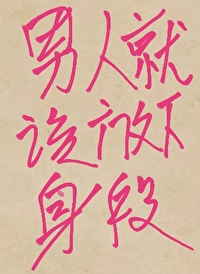 男人就
该放下
身段